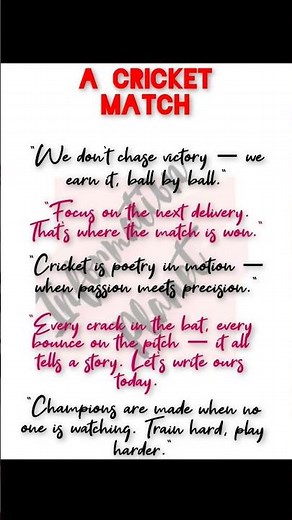 A CRICKET
MATCH
"We don't chase victory — we
earn it, ball by ball."
"Focus on the next delivery.
That's where the match is won."
"Cricket is poetry in motion —
when passion meets precision."
"Every crack in the bat, every
bounce on the pitch — it all
tells a story. Let's write ours
today.
"Champions are made when no
one is watching. Train hard, play
harder."